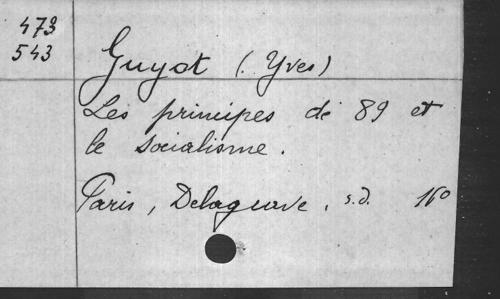 473
543
Guyot (. Yves)
Les principes de 89 et
le socialisme.
Paris, Delagrave, s.d. 16º